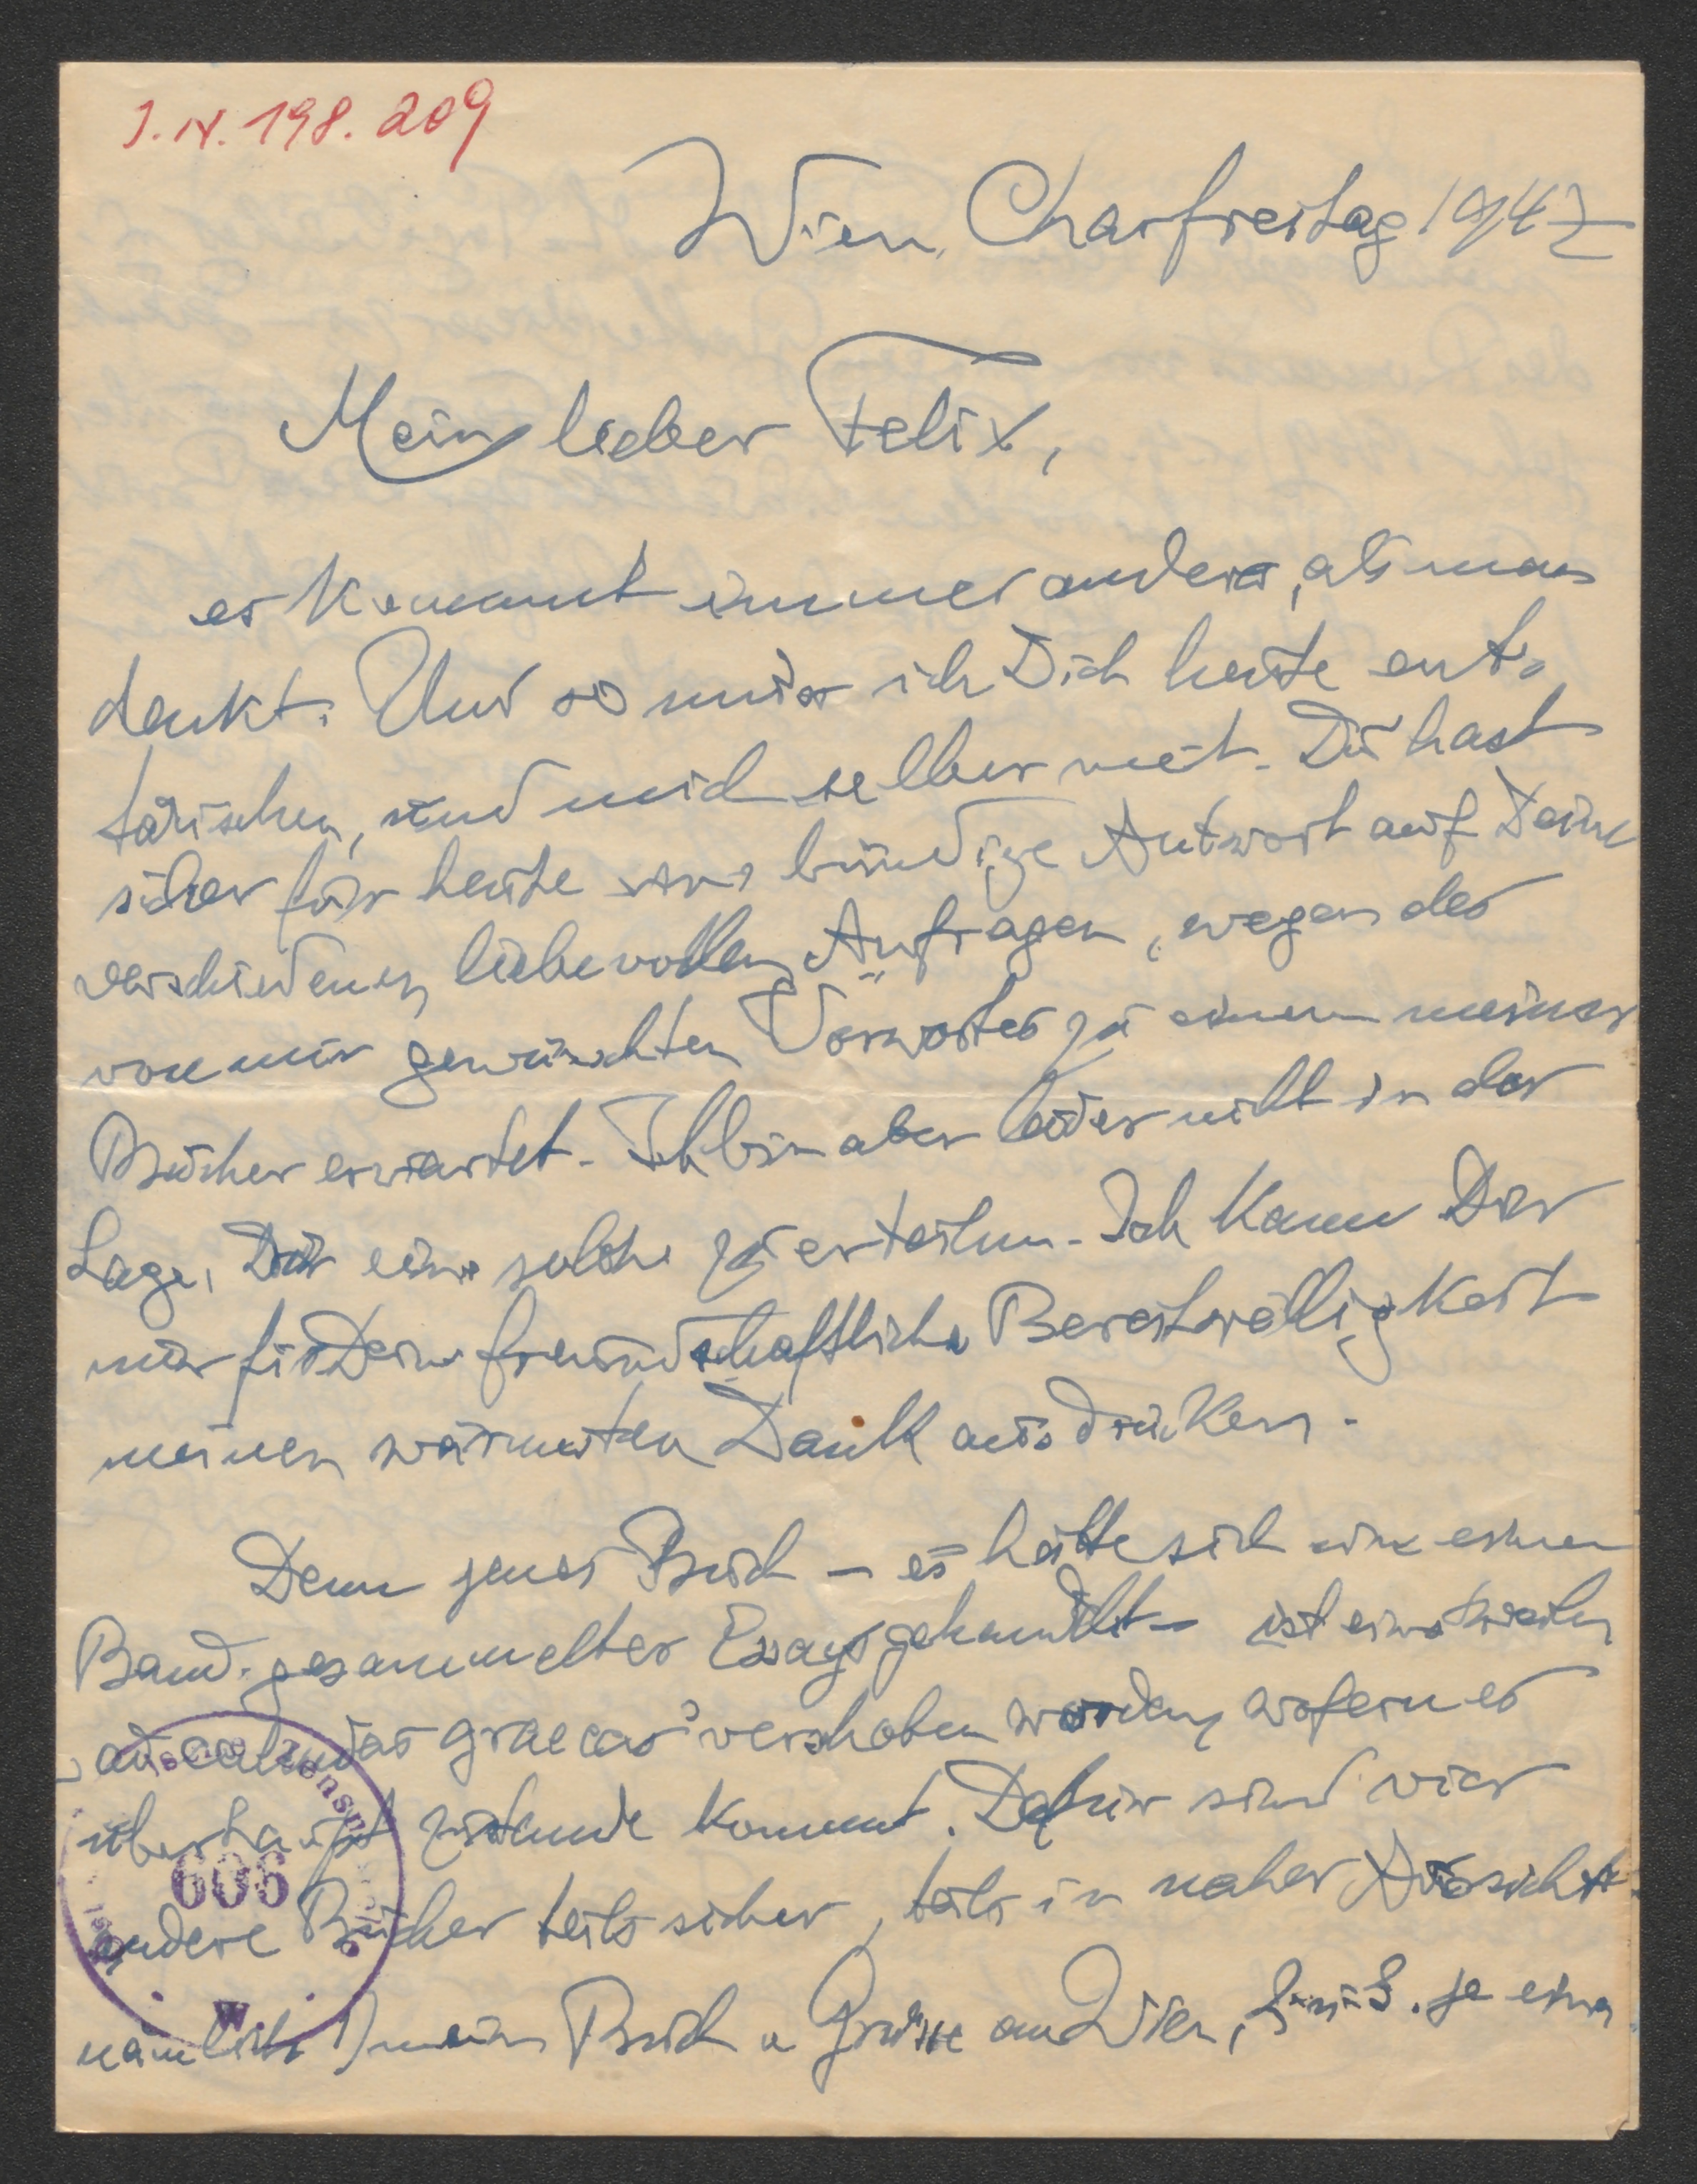 I.N. 198.209
Wien, Charfreitag 1947
Mein lieber Felix,
es kommt immer anders, als man
denkt. Und so muss ich Dich heute ent-
täuschen, und mich selber mit. Du hast
sicher für heute eine bündige Antwort auf Deine
verschiedenen liebevollen Anfragen, wegen des
von mir gewünschten Vorwortes zu einem meiner
Bücher erwartet. Ich bin aber leider nicht in der
Lage, Dir eine solche zu erteilen. Ich kann Dir
nur für Deine freundschaftliche Bereitwilligkeit
meinen wärmsten Dank ausdrücken.
Denn jenes Buch – es hätte sich um einen
Band gesammelter Essays gehandelt – ist einstweilen
„ad calendas graecas" verschoben worden, wofern es
überhaupt zustande kommt. Dafür sind vier
andere Bücher teils sicher, teils in naher Aussicht
nämlich 1) mein Buch „Grüsse an Wien, 2. u. 3. je einen
606
W